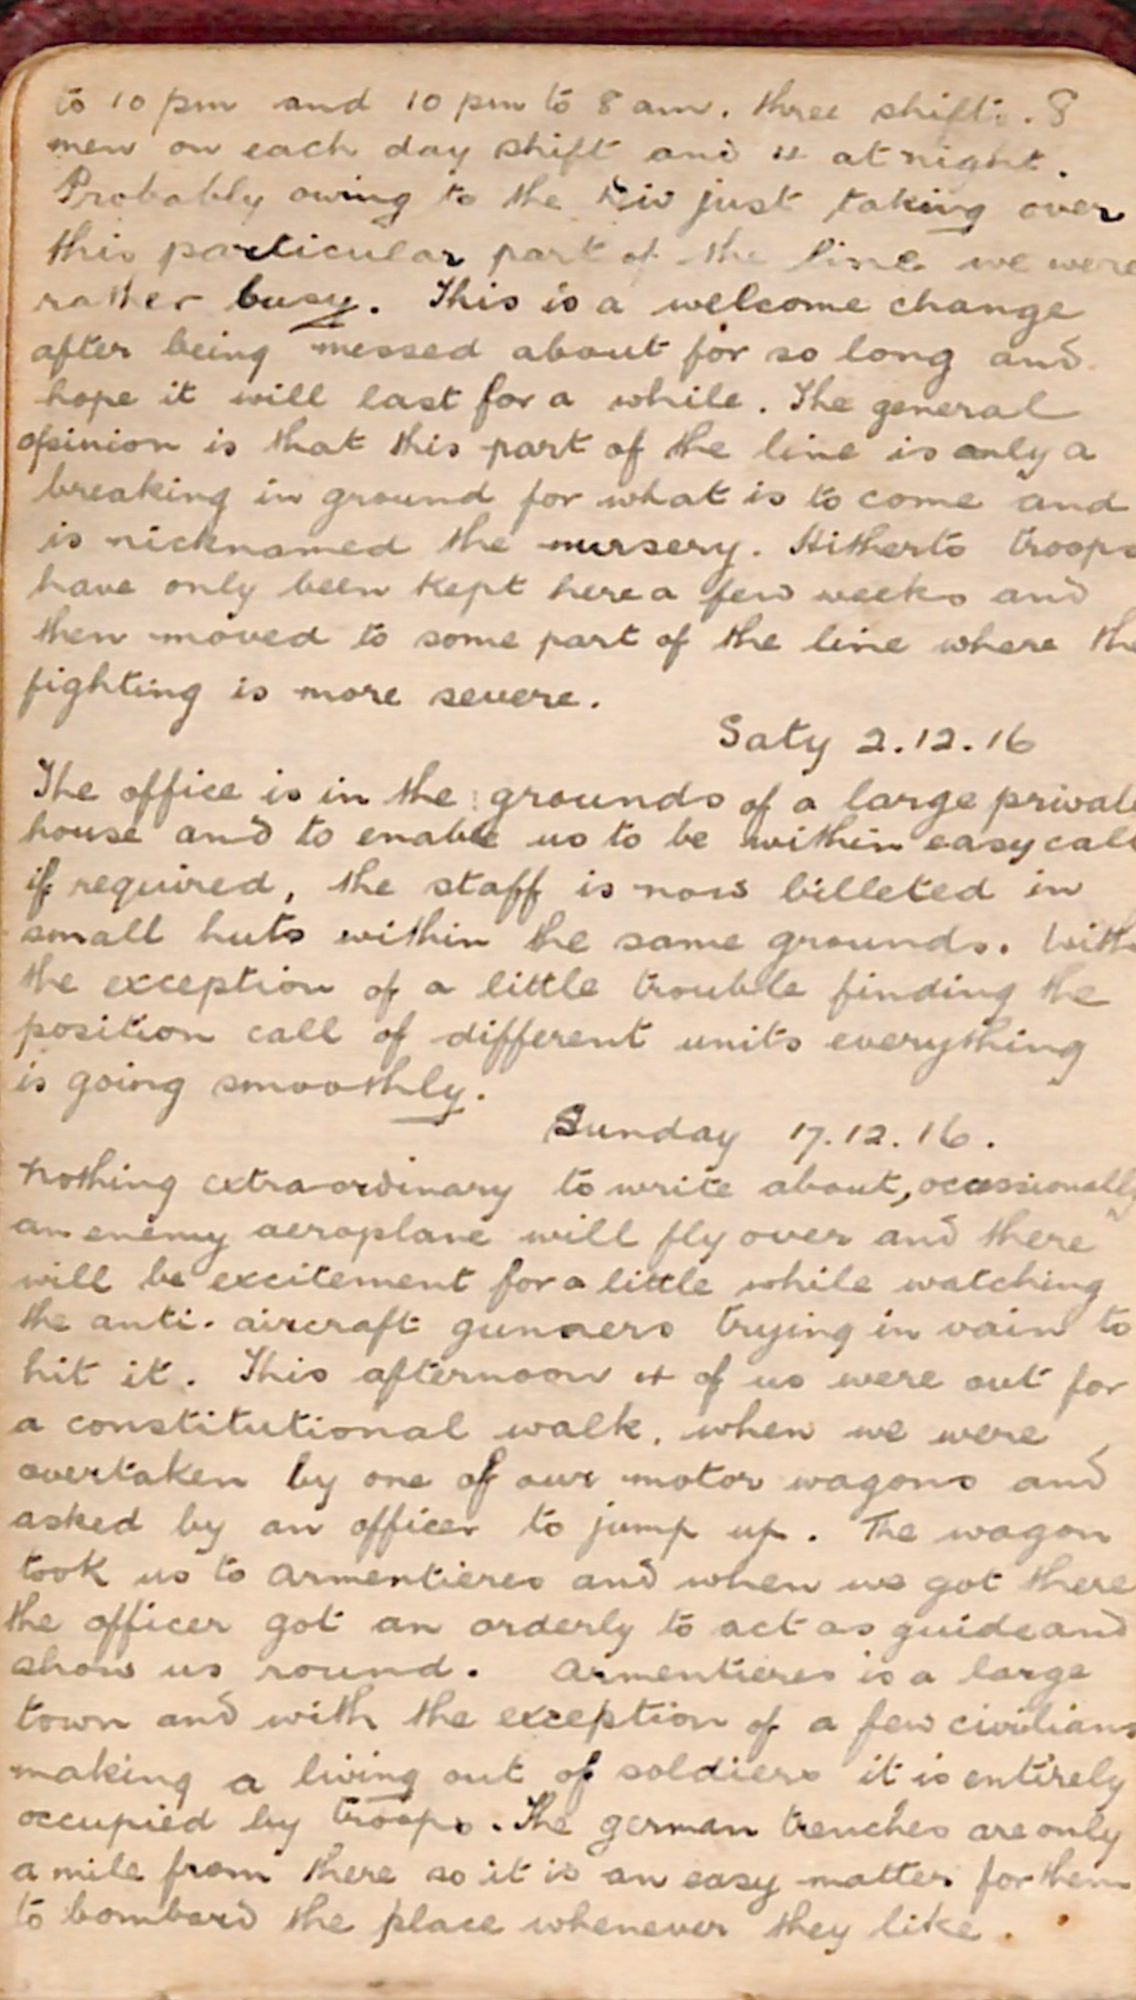 to 10 pm and 10 pm to 8 am. three shifts. 8
men on each day shift and 4 at night.
Probably owing to the Div just taking over
this particular part of the line we were
rather busy. This is a welcome change
after being messed about for so long and
hope it will last for a while. The general
opinion is that this part of the line is only a
breaking in ground for what is to come and
is nicknamed the nursery. Hitherto troops
have only been kept here a few weeks and
then moved to some part of the line where the
fighting is more severe.
Saty 2.12.16
The office is in the grounds of a large private
house and to enable us to be within easy call
if required, the staff is now billeted in
small huts within the same grounds. With
the exception of a little trouble finding the
position call of different units everything
is going smoothly.
Sunday 17.12.16.
Nothing extraordinary to write about, ocassionally
an enemy aeroplane will fly over and there
will be excitement for a little while watching
the anti-aircraft gunners trying in vain to
hit it. This afternoon 4 of us were out for
a constitutional walk, when we were
overtaken by one of our motor wagons and
asked by an officer to jump up. The wagon
took us to Armentieres and when we got there
the officer got an orderly to act as guide and
show us round. Armentieres is a large
town and with the exception of a few civilians
making a living out of soldiers it is entirely
occupied by troops. The german trenches are only
a mile from there so it is an easy matter for them
to bombard the place whenever they like.